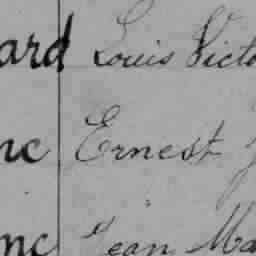 ard Louis Victo
nc Ernest J
nc Jean Ma